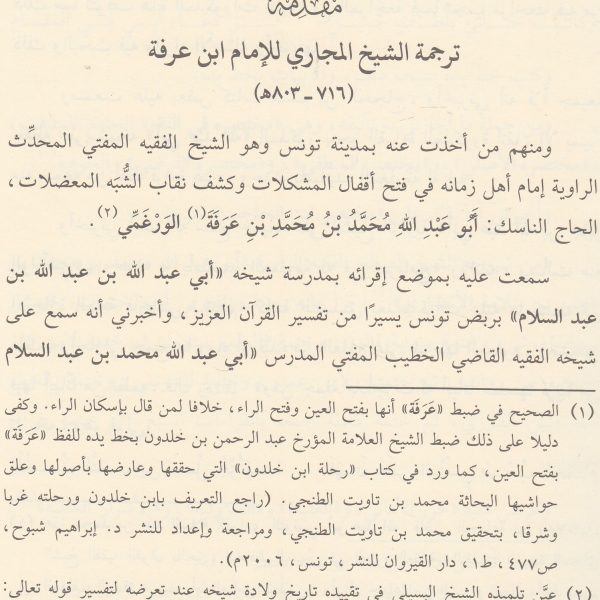 مقدمة
ترجمة الشيخ المجاري للإمام ابن عرفة
(٧١٦ ـ ٨٠٣هـ)
ومنهم من أخذت عنه بمدينة تونس وهو الشيخ الفقيه المفتي المحدِّث
الراوية إمام أهل زمانه في فتح أقفال المشكلات وكشف نقاب الشُّبَه المعضلات،
الحاج الناسك: أَبُو عَبْدِ اللهِ مُحَمَّدُ بْنُ مُحَمَّدِ بْنِ عَرَفَةَ(١) الوَرْغَمِّي(٢).
سمعت عليه بموضع إقرائه بمدرسة شيخه «أبي عبد الله بن عبد الله بن
عبد السلام» بربض تونس يسيرًا من تفسير القرآن العزيز، وأخبرني أنه سمع على
شيخه الفقيه القاضي الخطيب المفتي المدرس «أبي عبد الله محمد بن عبد السلام
(١) الصحيح في ضبط «عَرَفَة» أنها بفتح العين وفتح الراء، خلافا لمن قال بإسكان الراء. وكفى
دليلا على ذلك ضبط الشيخ العلامة المؤرخ عبد الرحمن بن خلدون بخط يده للفظ «عَرَفَة»
بفتح العين، كما ورد في كتاب «رحلة ابن خلدون» التي حققها وعارضها بأصولها وعلق
حواشيها البحاثة محمد بن تاويت الطنجي. (راجع التعريف بابن خلدون ورحلته غربا
وشرقا، بتحقيق محمد بن تاويت الطنجي، ومراجعة وإعداد للنشر د. إبراهيم شبوح،
ص٤٧٧، ط١، دار القيروان للنشر، تونس، ٢٠٠٦م).
(٢) عيَّن تلميذه الشيخ البسيلي في تقييده تاريخ ولادة شيخه عند تعرضه لتفسير قوله تعالى: